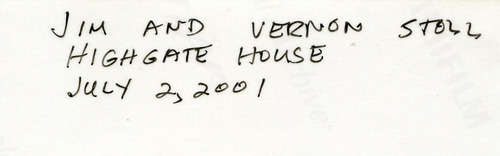 JIM AND VERNON STOLL
HIGHGATE HOUSE
JULY 2, 2001